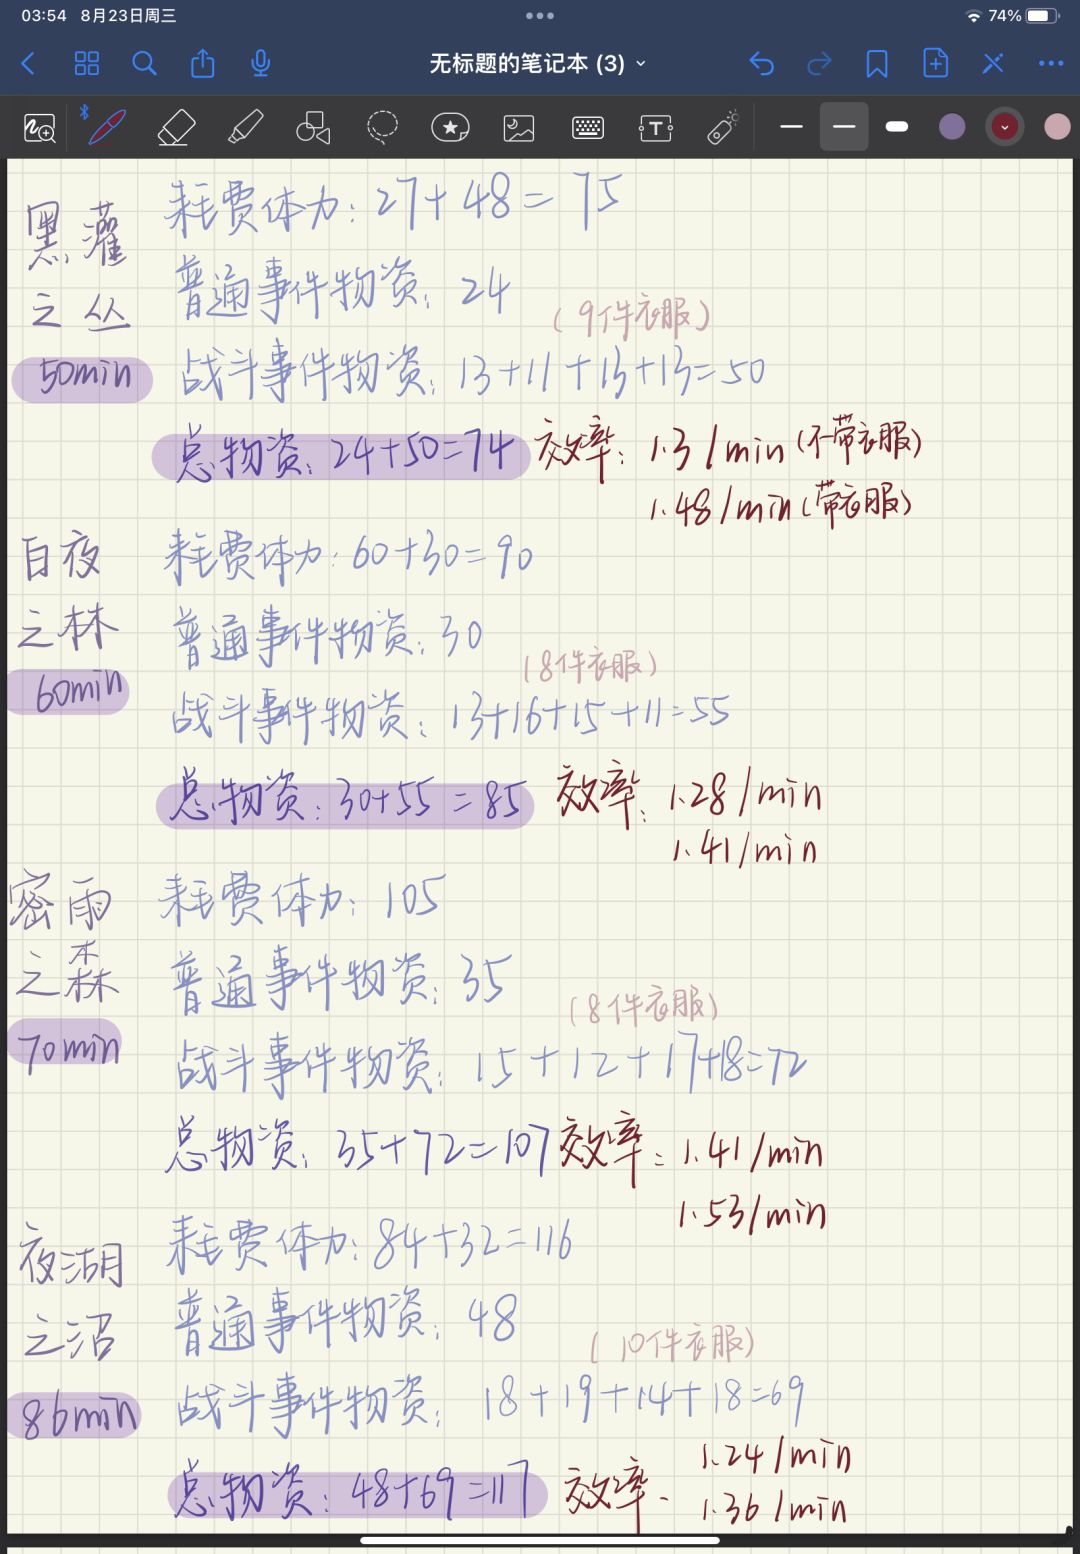 03:54 8月23日周三
74%
无标题的笔记本 (3)
黑灌之丛
50min
耗费体力：27+48=75
普通事件物资：24
(9件衣服)
战斗事件物资：13+11+13+13=50
总物资：24+50=74 效率：1.3/min(不带衣服)
1.48/min(带衣服)
白夜之林
60min
耗费体力：60+30=90
普通事件物资：30
(8件衣服)
战斗事件物资：13+16+15+11=55
总物资：30+55=85 效率：1.28/min
1.41/min
密雨之森
70min
耗费体力：105
普通事件物资：35
(8件衣服)
战斗事件物资：15+12+17+18=72
总物资：35+72=107 效率：1.41/min
1.53/min
夜湖之沼
86min
耗费体力：84+32=116
普通事件物资：48
(10件衣服)
战斗事件物资：18+19+14+18=69
总物资：48+69=117 效率：1.24/min
1.36/min